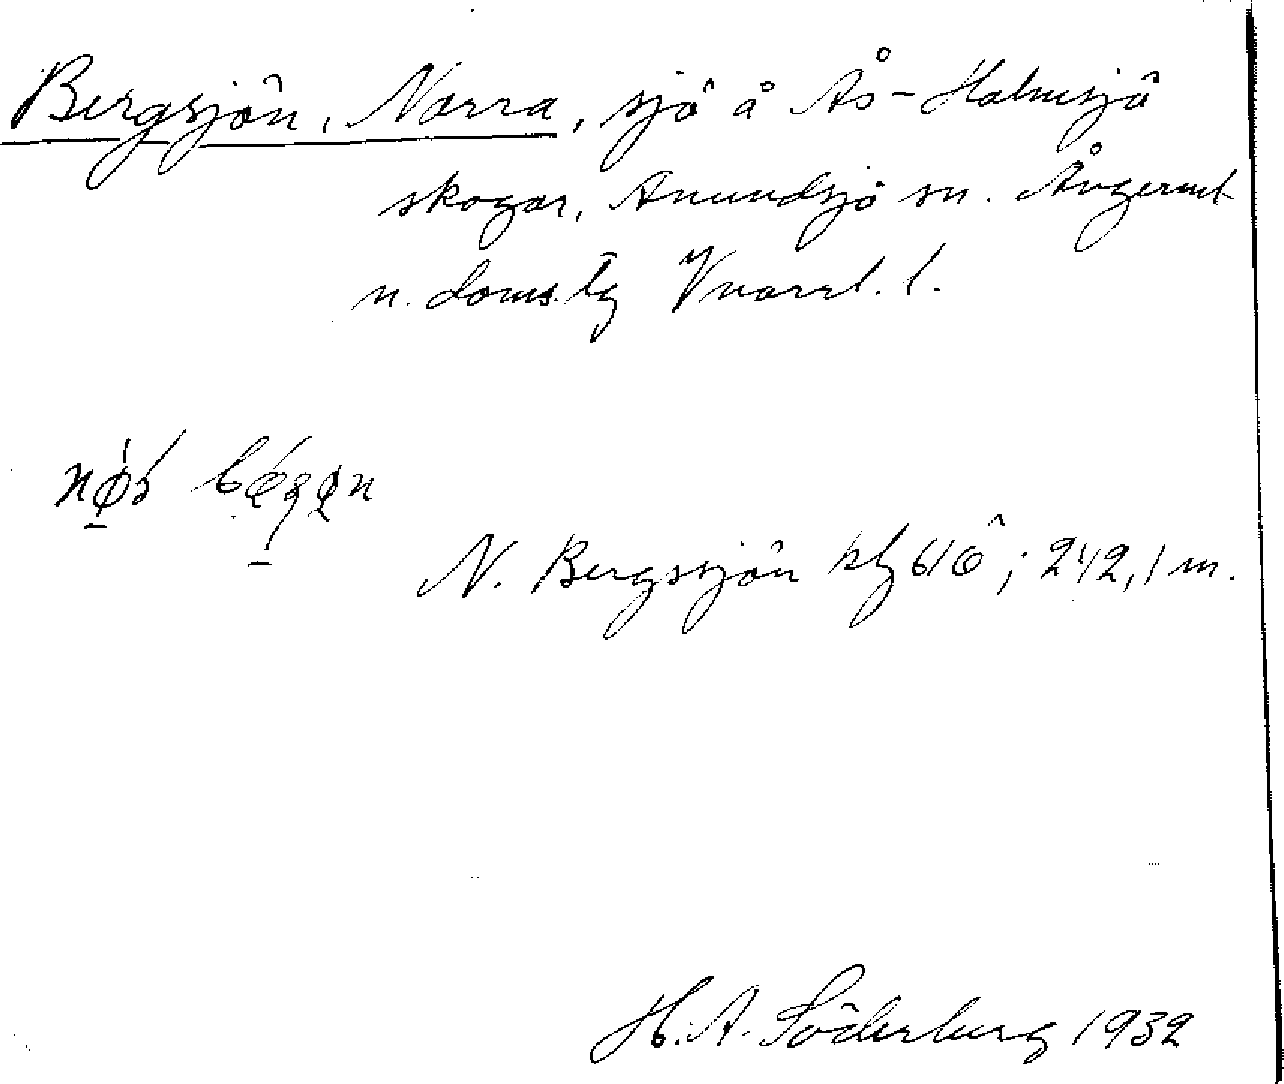 Bergsjön, Norra, sjö å Ås-Holmsjö
skogar, Anundsjö sn. Ångerml
n. doms.
N. Bergsjön kbl 616; 242,1 m.
H. A. Söderberg 1932